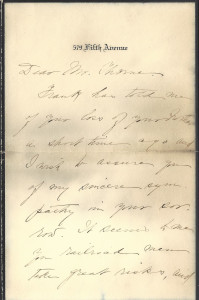 579 Fifth Avenue
Dear Mr. Thorne
Frank has told me
of your loss of your
a short time ago and
I wish to assure you
of my sincere sym
pathy in your sor-
row. It seems
you railroad men
take great risks, and